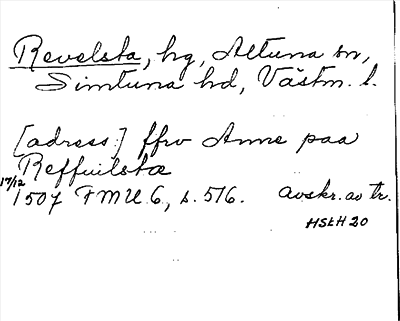 Revelsta, hg, Altuna sn,
Simtuna hd, Västm. l.
[adress:] ffrv Anne paa
Reffuilstæ
17/12 1507 FMU 6, s. 516. avskr. av tr.
HSLH 20